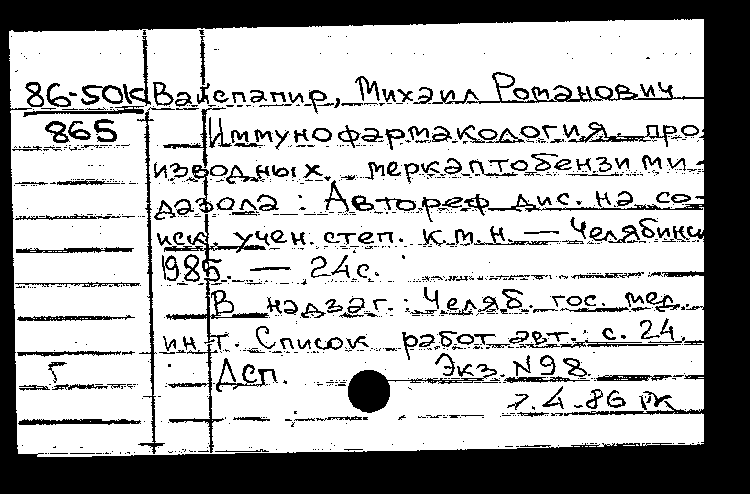 86-50к Вайспапир, Михаил Романович
865 Иммунофармакология про-
изводных меркаптобензими-
дазола: Автореф дис. на со-
иск. учен. степ. к.м.н. — Челябинск
1985. — 24с.
В надзаг.: Челяб. гос. мед.
ин-т. Список работ авт.: с. 24.
Г Дсп. Экз. N98
7.4.86 РК